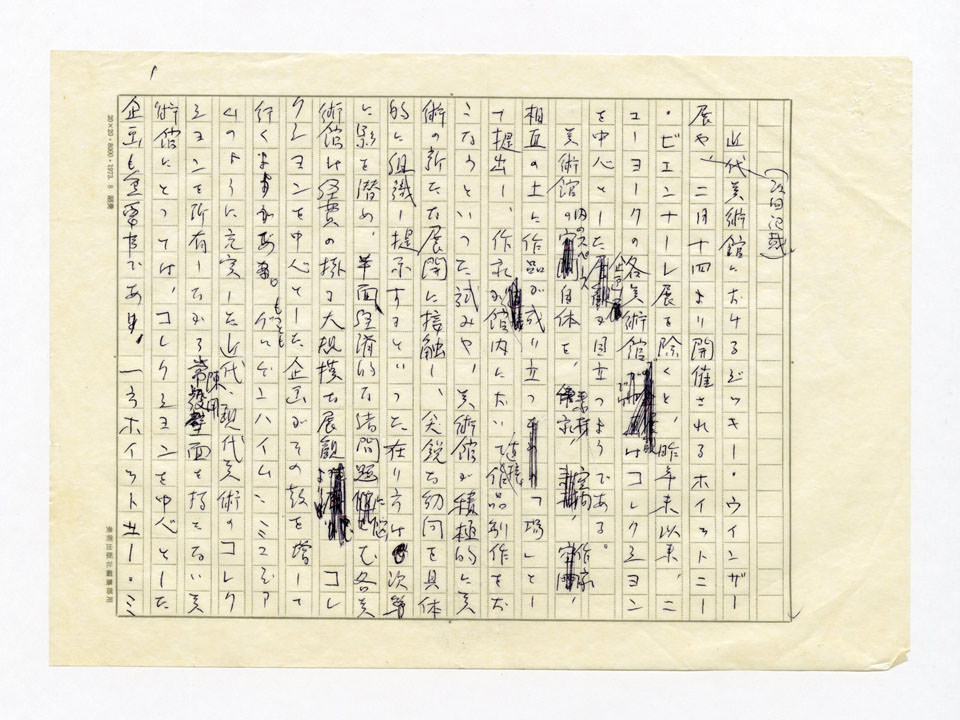 近代美術館におけるジャッキー・ウインザー
展や、二月十四より開催されるホイットニー
・ビエンナーレ展を除くと、昨年末以来、ニ
ューヨークの各美術館 はコレクション
を中心とした 企画 が目立つようである。
美術館の 内のスペース 自体を、 素材、空間、作家、
相互の上に作品が成り立つ 「場」とし
て提出し、作家が館内において 直接 作品制作をお
こなうといった試みや、美術館が積極的に美
術の新たな展開に接触し、尖鋭な動向を具体
的に組識し提示するといった在り方は 次第
に影を潜め、半面経済的な諸問題に悩む各美
術館は経費の掛る大規模な展観 より コレ
クションを中心とした企画がその数を増して
行くようである。もっともグッゲンハイム・ミュゼア
ムのように充実した近代、現代美術のコレク
ションを所有しながら常設 陳列 面を持たない美
術館にとっては、コレクションを中心とした
企画も重要事であり、一方ホイットニー・ミ
20×20・8000・1973. 8